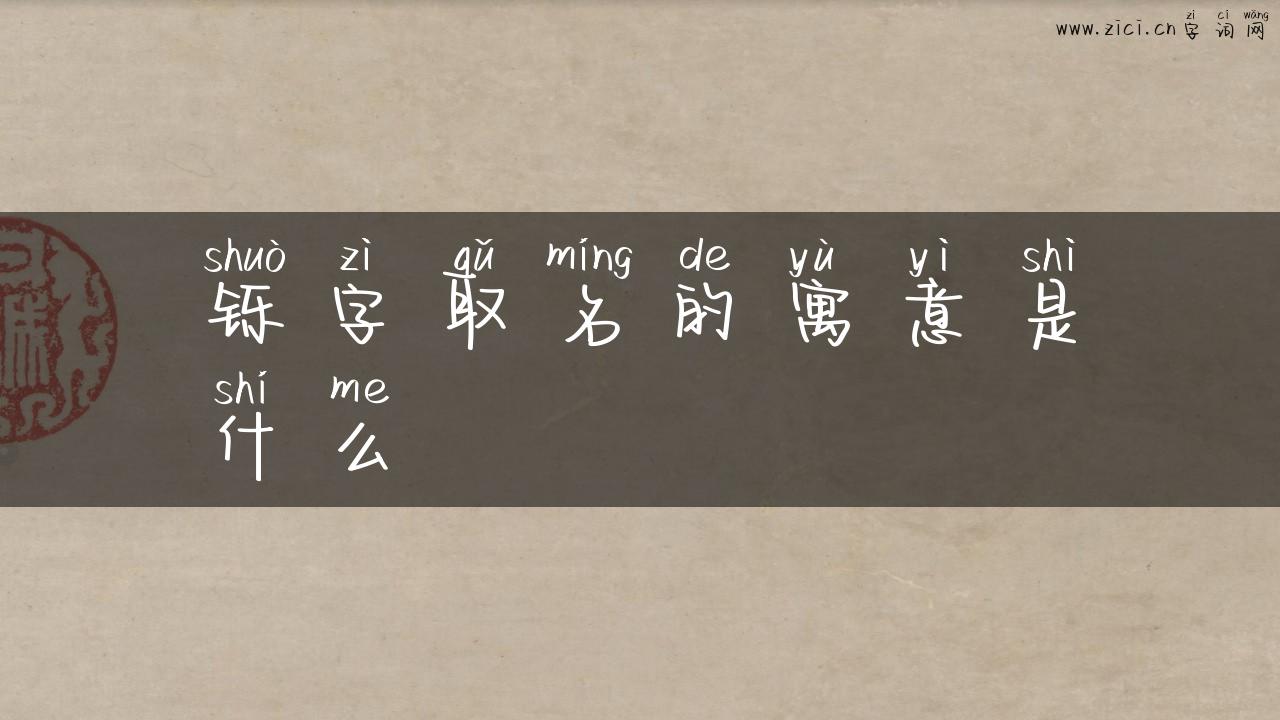 www.zici.cn 字词网
zì cí wǎng
shuò zì qǔ míng de yù yì shì
铄字取名的寓意是
shí me
什么